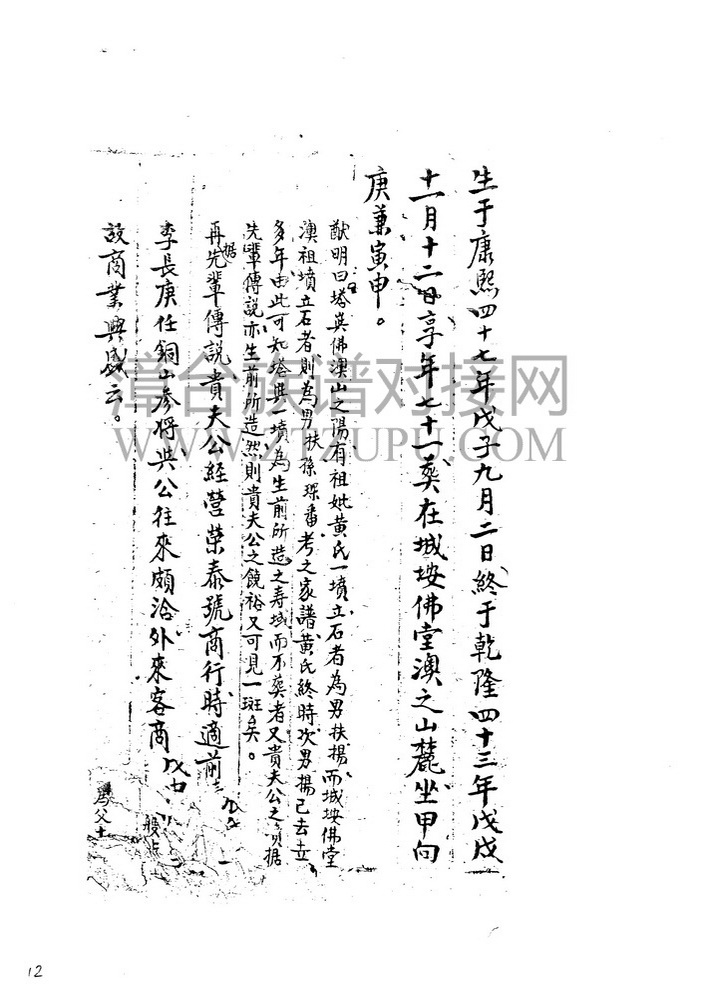 生于康熙四十七年戊子九月二日終于乾隆四十三年戊戌
十一月十二日享年七十一葬在城垵佛堂澳之山麓坐甲向
庚兼寅申。
猷明曰塔與佛澳山之陽有祖妣黃氏一墳立石者為男扶揚而城垵佛堂
澳祖墳立石者則為男扶孫琛番考之家譜黃氏終時次男揚已去世
多年由此可知塔與一墳為生前所造之寿域而不葬者又貴夫公之 据
先輩傳説亦生前所造然則貴夫公之饒裕又可見一斑矣。
再据先輩傳說貴夫公經營榮泰號商行時適前
李長庚任銅山参将與公往來頗洽外來客商
設商業興盛云。
漳台族谱对接网
WWW.ZTZUPU.COM
12